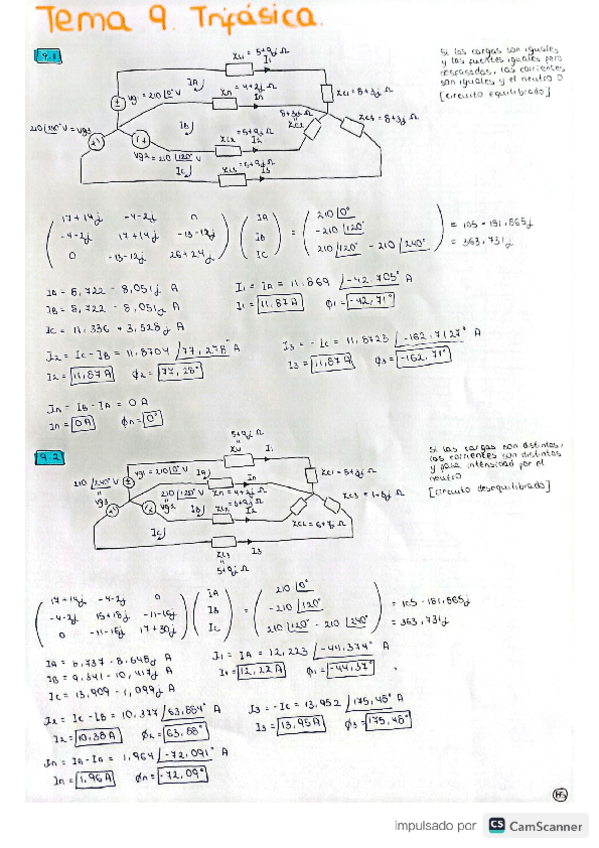 Tema 9. Trifásica.
9.1
Si las cargas son iguales
y las fuentes iguales pero
desfasadas, las corrientes
son iguales y el neutro 0
[circuito equilibrado]
I1
Zn = 4+2j Ω
In
IA
Vg1 = 210 |0° V
ZC1 = 8+3j Ω
ZC3 = 8+3j Ω
8+3j Ω
ZC2
IB
I2
Vg2 = 210 |120° V
IC
I3
17+14j -4-2j 0
-4-2j 17+14j -13-12j
0 -13-12j 26+24j
IA
IB
IC
=
210 |0°
-210 |120°
210 |120° - 210 |240°
= 105 - 181,865j
= 363,731j
IA = 8,722 - 8,051j A
IB = 8,722 - 8,051j A
IC = 11,336 + 3,528j A
I1 = IA = 11,869 |-42,705° A
I1 = 11,87 A ϕ1 = -42,71°
I2 = IC - IB = 11,8704 |77,278° A
I2 = 11,87 A ϕ2 = 77,28°
I3 = - IC = 11,8723 |-162,7127° A
I3 = 11,87 A ϕ3 = -162,71°
In = IB - IA = 0 A
In = 0 A ϕn = 0°
9.2
Si las cargas son distintas,
las corrientes son distintas
y pasa intensidad por el
neutro
[circuito desequilibrado]
5+9j Ω
I1
Vg1 = 210 |0° V
IA
In
210 |240° V
Vg3
210 |120° V
Zn = 4+2j Ω
Vg2
IB
I2
IC
ZL3
I3
5+9j Ω
-4-2j 0
0
IA
IB
IC
=
210 |0°
-210 |120°
210 |120° - 210 |240°
= 105 - 181,865j
= 363,731j
IA = 8,737 - 8,548j A
IB = 9,341 - 10,417j A
IC = 13,909 - 1,099j A
I1 = IA = 12,223 |-44,374° A
I1 = 12,22 A ϕ1 = -44,37°
I2 = IC - IB = 10,377 |63,884° A
I2 = 10,38 A ϕ2 = 63,88°
I3 = - IC = 13,952 |175,48° A
I3 = 13,95 A ϕ3 = 175,48°
In = IB - IA = 1,964 |-72,091° A
In = 1,96 A ϕn = -72,09°
impulsado por CS CamScanner